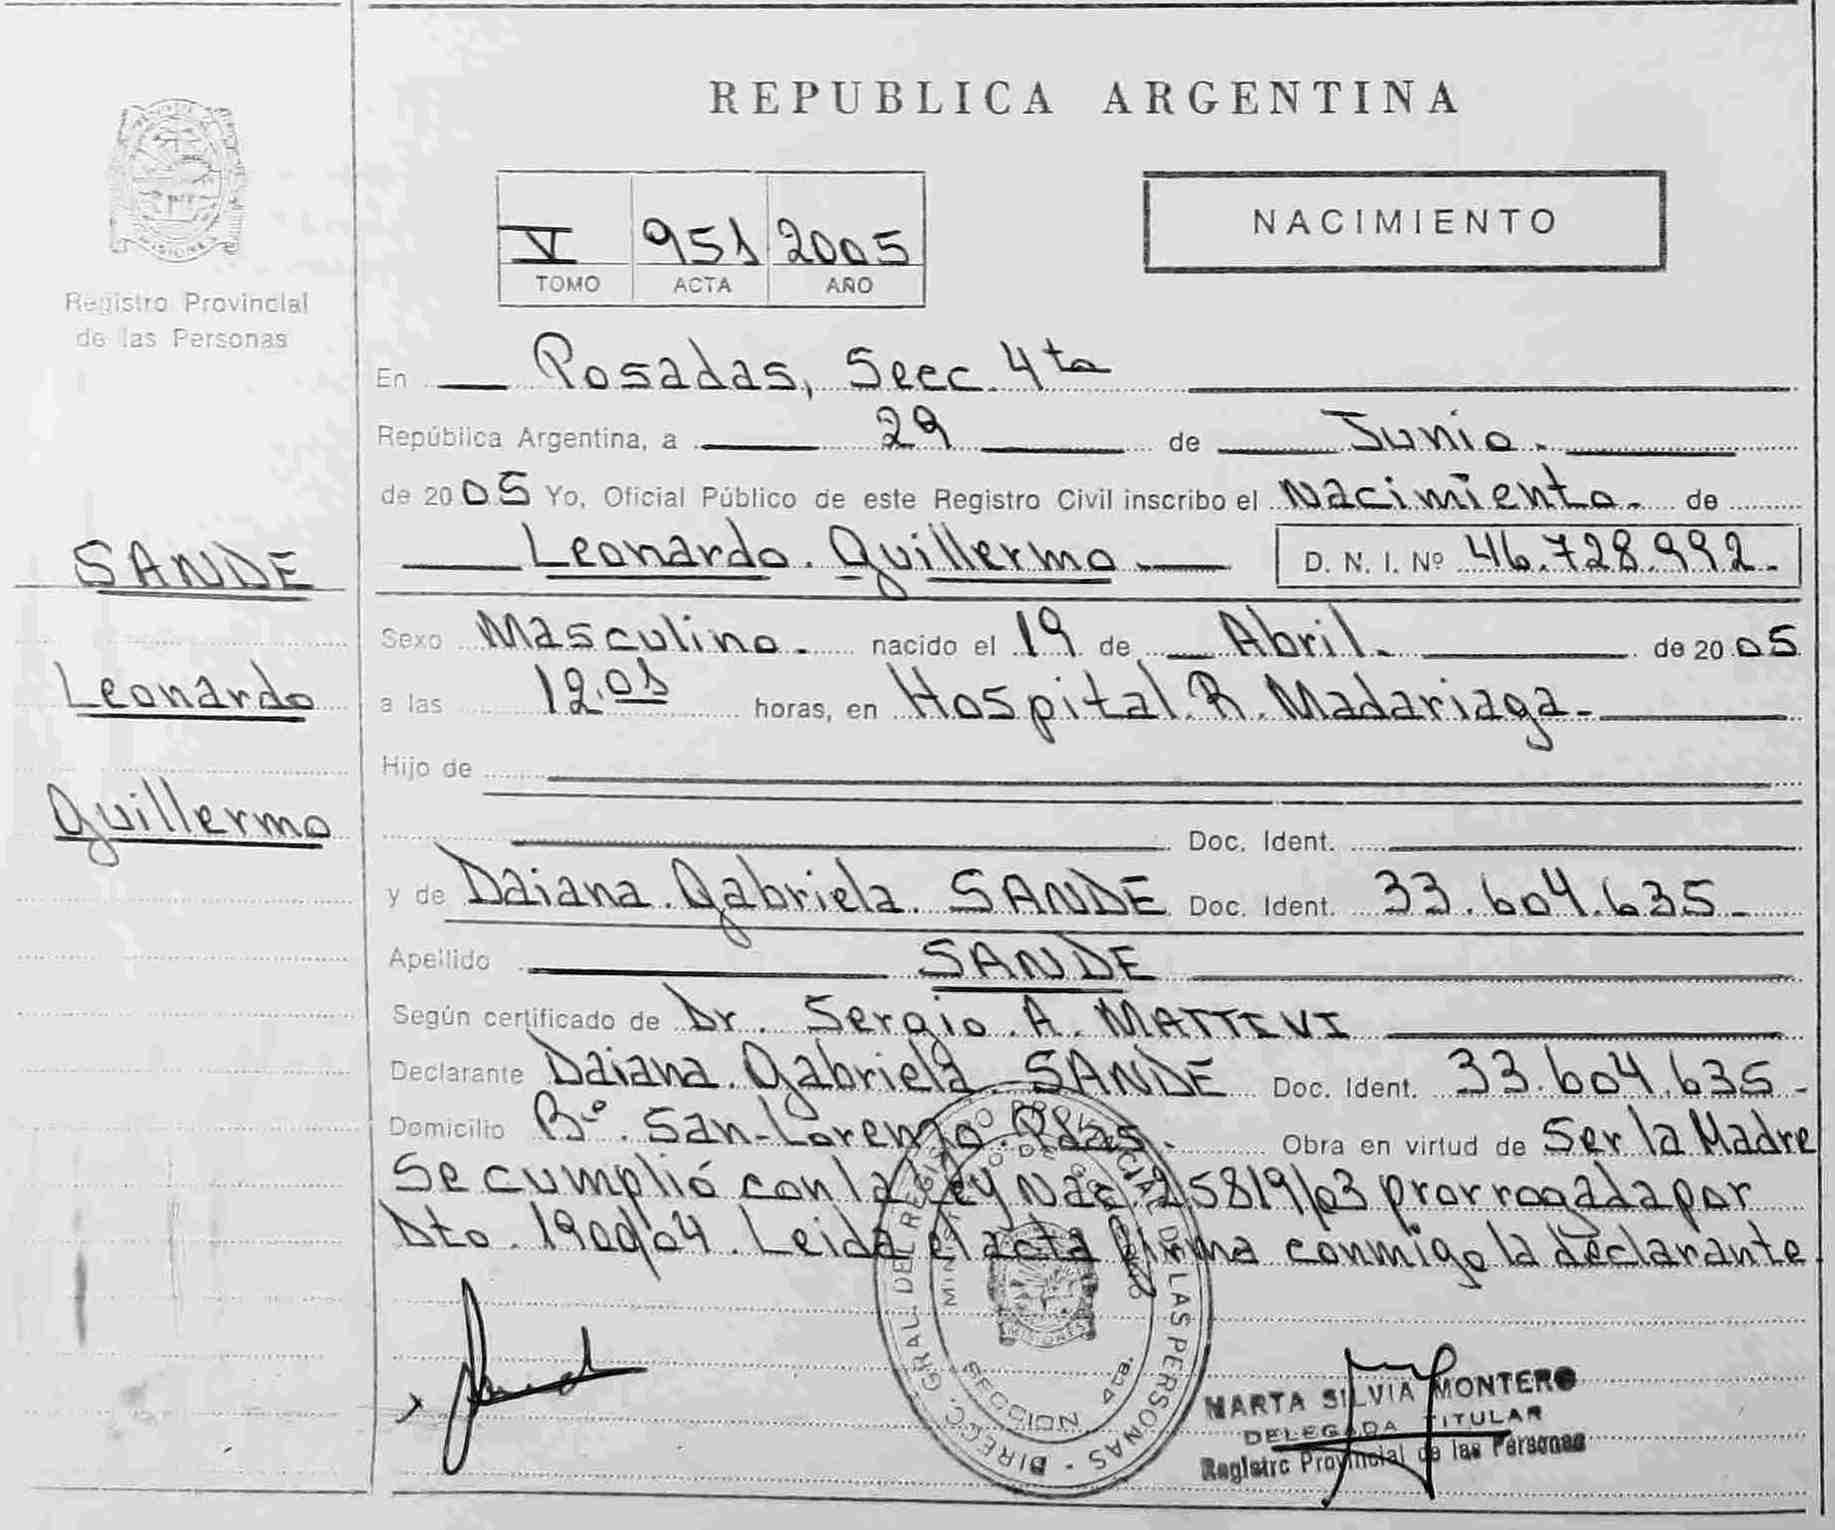 REPUBLICA ARGENTINA
Registro Provincial
de las Personas
V 951 2005
TOMO ACTA AÑO
NACIMIENTO
SANDE
Leonardo
Guillermo
En Posadas, Secc. 4ta
República Argentina, a 29 de Junio.
de 2005 Yo, Oficial Público de este Registro Civil inscribo el Nacimiento. de
Leonardo. Guillermo. D. N. I. Nº 46.728.992.
Sexo Masculino. nacido el 19 de Abril. de 2005
a las 12.01 horas, en Hospital. R. Madariaga.
Hijo de
Doc. Ident.
y de Daiana. Gabriela. SANDE Doc. Ident. 33.604.635.
Apellido SANDE
Según certificado de Dr. Sergio. A. MATTIVI
Declarante Daiana. Gabriela. SANDE Doc. Ident. 33.604.635.
Domicilio Bº. San-Lorenzo. Pdas. Obra en virtud de Ser la Madre
Se cumplió con la Ley Nac. 25819/03 prorrogada por
Dto. 1900/04. Leida el acta firma conmigo la declarante
DIRECC. GRAL. DEL REGISTRO PROVINCIAL DE LAS PERSONAS
MINISTERIO DE GOBIERNO
MISIONES
SECCION 4ta.
MARTA SILVIA MONTERO
DELEGADA TITULAR
Registro Provincial de las Personas